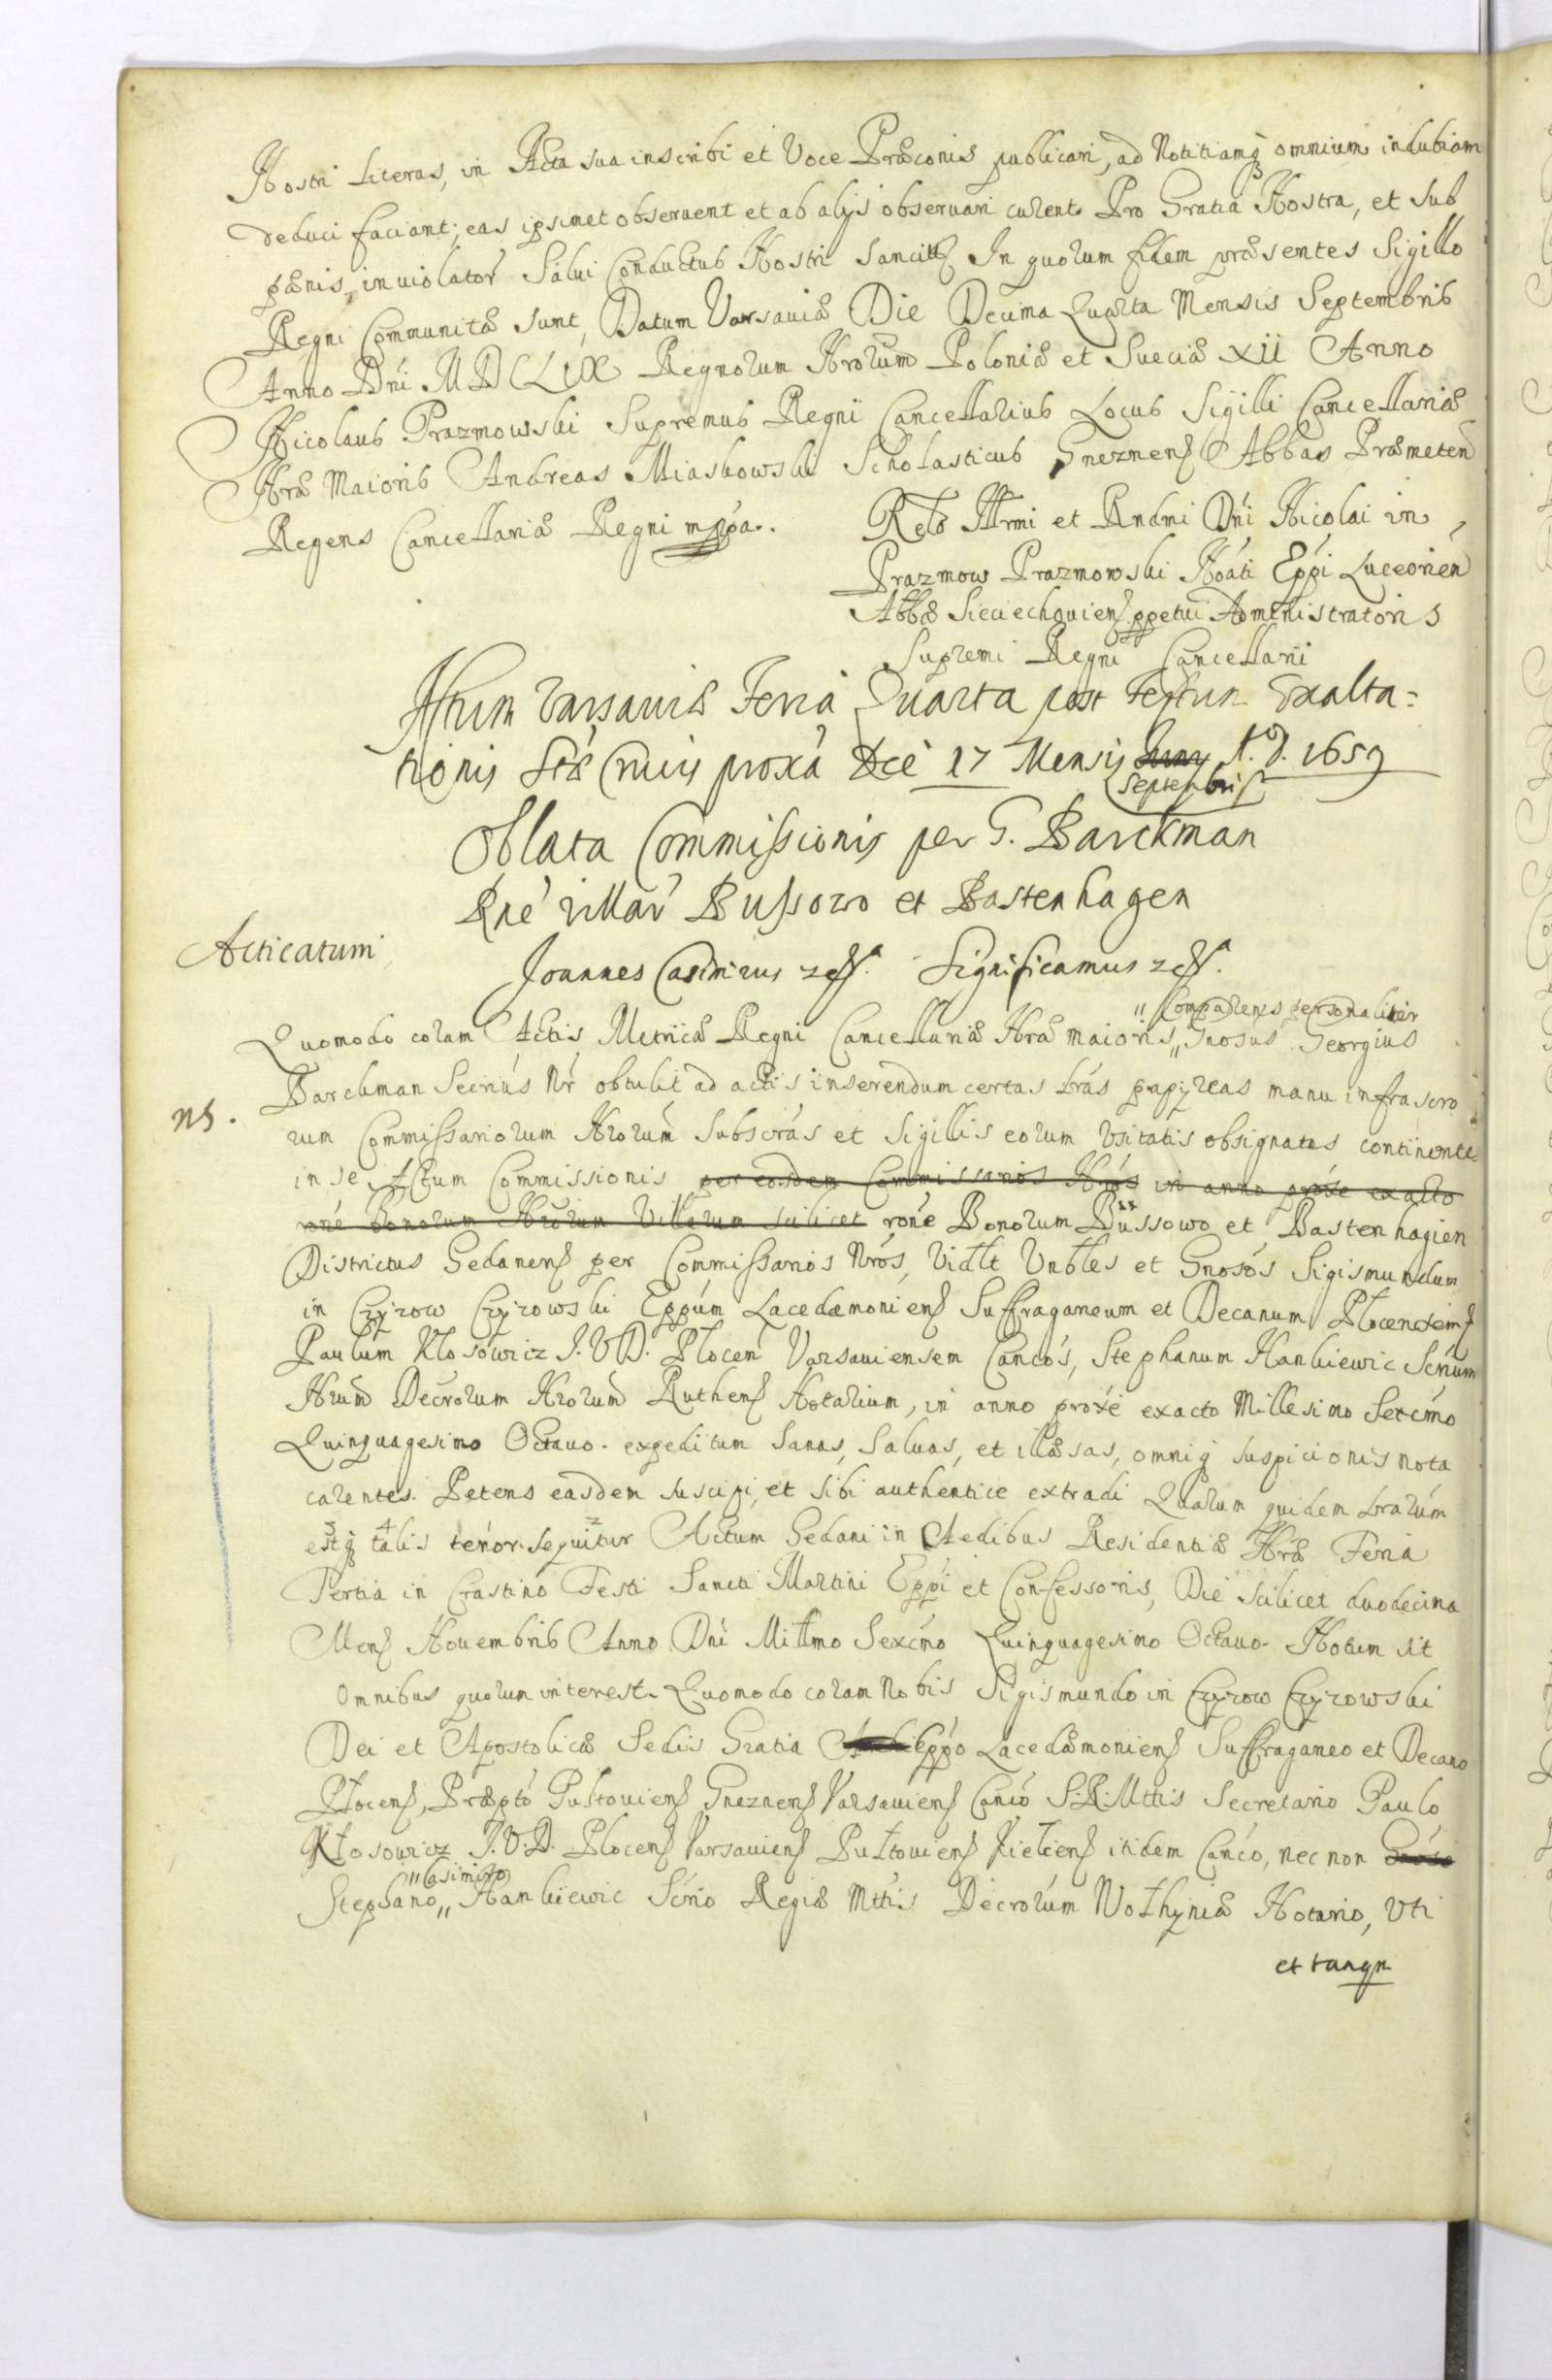 Nostri Literas, in Acta sua inscribi et Voce Præconis publicari, ad Notitiamq omnium indubiam
deduci faciant; eas ipsimet obseruent et ab alijs obseruari curent Pro Gratia Nostra, et sub
pœnis inuiolator Salui Conductus Nostri sancitis In quorum fidem præsentes Sigillo
Regni Communitæ sunt, Datum Varsauiæ Die Decima Quarta Mensis Septembris
Anno Dni MDCLIX Regnorum Nrorum Poloniæ et Sueciæ XII Anno
Nicolaus Prazmowski Supremus Regni Cancellarius Locus Sigilli Cancellariæ
Nræ Maioris Andreas Miaskowski Scholasticus Gneznens Abbas Præmeten
Regens Cancellariæ Regni mppa.
Relo Illrmi et Rndmi Dni Nicolai in
Prazmow Prazmowski Noáti Eppi Luceorien
Abbæ Sieciechouiens ppetui Administratoris
Supremi Regni Cancellarii
Actum Varsauiæ Feria Quarta post Festum Exalta=
tionis Stæ Crucis proxa Die 17 Mensis Septembris A. D. 1659
Oblata Commissionis per G. Barckman
Rne villar Bussowo et Bastenhagen
Acticatum
Joannes Casimirus etc. Significamus etc.
Quomodo coram Actis Metricæ Regni Cancellariæ Nræ maioris " Comparens personaliter " Gnosus Georgius
Barckman Secrius Nr obtulit ad actis inserendum certas lras papyreas manu infrascro
NB.
rum Commissariorum Nrorum subscras et Sigillis eorum Vsitatis obsignatas continente
in se Actum Commissionis per eosdem Commissarios Nros in anno proxe exacto
rone Bonorum Nrorum Villarum scilicet rone Bonorum Bussowo et Bastenhagien
Districtus Gedanens per Commissarios Nros, Vidlt Vnbles et Gnosos Sigismundum
in Czyzow Czyzowski Eppum Lacedæmoniens Suffraganeum et Decanum Plocensem
Paulum Kłosowicz J.V.D. Plocen Varsauiensem Cancos, Stephanum Hankiewic Scrium
Nrum Decrorum Nrorum Ruthens Notarium, in anno proxe exacto Millesimo Sexcmo
Quinquagesimo Octauo. expeditum Sanas, Saluas, et illæsas, omniq suspicionis nota
carentes. Petens easdem suscipi, et sibi authentice extradi Quarum quidem lrarum
estq talis tenor sequitur Actum Gedani in Aedibus Residentiæ Nræ Feria
Tertia in Crastino Festi Sancti Martini Eppi et Confessoris, Die scilicet duodecima
Mens Nouembris Anno Dni Millmo Sexcmo Quinquagesimo Octauo. Notum sit
Omnibus quorum interest. Quomodo coram Nobis Sigismundo in Czyzow Czyzowski
Dei et Apostolicæ Sedis Gratia Eppo Lacedæmoniens Suffraganeo et Decano
Plocens, Præpto Pultouiens Gneznens Varsauiens Canco S. R. Mttis Secretario Paulo
Kłosowicz J.V.D. Plocens Varsauiens Pultouiens Kielcens itidem Canco, nec non Gnoso
Stephano " Casimiro " Hankiewic Scrio Regiæ Mttis Decrorum Wołhyniæ Notario, Vti
et tanqn